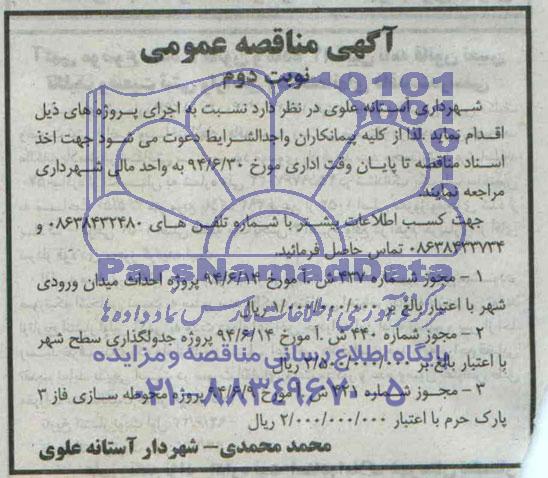 آگهی مناقصه عمومی
نوبت دوم
شهرداری آستانه علوی در نظر دارد نسبت به اجرای پروژه های ذیل
اقدام نماید لذا از کلیه پیمانکاران واجدالشرایط دعوت می شود جهت اخذ
اسناد مناقصه تا پایان وقت اداری مورخ ۹۴/۶/۳۰ به واحد مالی شهرداری
مراجعه نمایند.
جهت کسب اطلاعات بیشتر با شماره تلفن های ۰۸۶۳۸۴۳۲۴۸۰ و
۰۸۶۳۸۴۳۳۷۳۴ تماس حاصل فرمائید.
ParsNamadData
۱ - مجوز شماره ۴۳۷ ش.أ مورخ ۹۴/۶/۱۴ پروژه احداث میدان ورودی
شهر با اعتبار بالغ بر ۱/۰۰۰/۰۰۰/۰۰۰ ریال
مرکز فرآوری اطلاعات پارس نماد داده ها
۲ - مجوز شماره ۴۴۰ ش.أ مورخ ۹۴/۶/۱۴ پروژه جدولگذاری سطح شهر
پایگاه اطلاع رسانی مناقصه و مزایده
با اعتبار بالغ بر ریال
۳ - مجوز شماره ۴۲۱ ش.أ مورخ پروژه محوطه سازی فاز ۳
۰۲۱-۸۸۳۴۹۶۷۰-۵
پارک حرم با اعتبار ۲/۰۰۰/۰۰۰/۰۰۰ ریال
محمد محمدی - شهردار آستانه علوی